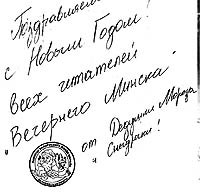 Поздравляем
с Новым Годом!
всех читателей
"Вечернего Минска"
от Дедушки Мороза
и Снегурочки!